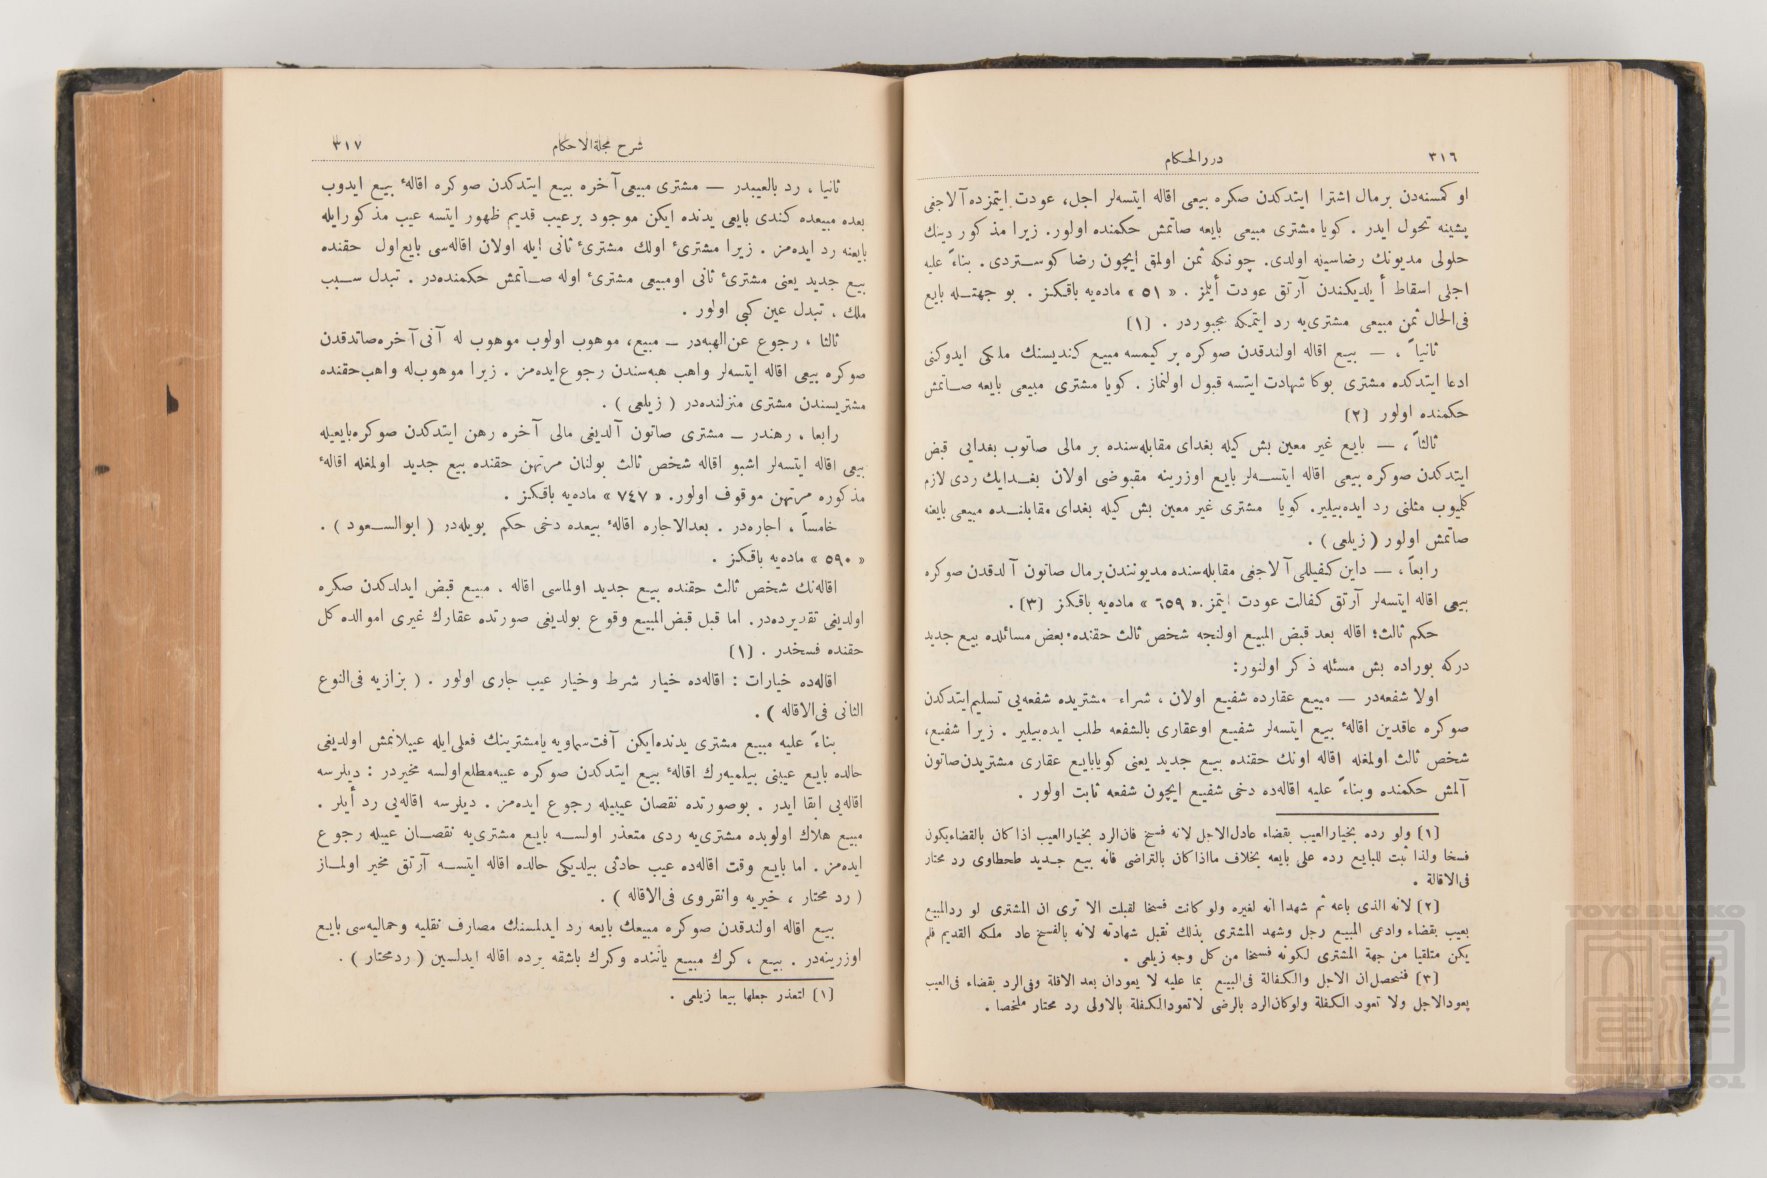 ٣١٦
دررالحكام
او كمسنه‌دن برمال اشترا ايتدكدن صكره بيعى اقاله ايتسه‌لر اجل، عودت ايتمزده آلاجغى
پشينه تحول ايدر . كويا مشترى مبيعى بايعه صاتمش حكمنده اولور. زيرا مذكور دينك
حلولى مديونك رضاسينه اولدى. چونكه ثمن اولمق ايچون رضا كوستردى . بناءً عليه
اجلى اسقاط أيلديكندن آرتق عودت أيلمز . « ٥١ » ماده‌يه باقكز . بو جهتله بايع
فى‌الحال ثمن مبيعى مشترى‌يه رد ايتمكه مجبوردر . (١)
ثانياً ، — بيع اقاله اولندقدن صوكره بر كيمسه مبيع كنديسنك ملكى ايدوكنى
ادعا ايتدكده مشترى بوكا شهادت ايتسه قبول اولنماز . كويا مشترى مبيعى بايعه صاتمش
حكمنده اولور (٢)
ثالثاً ، — بايع غير معين بش كيله بغداى مقابله‌سنده بر مالى صاتوب بغدايى قبض
ايتدكدن صوكره بيعى اقاله ايتسه‌لر بايع اوزرينه مقبوضى اولان بغدايك ردى لازم
كلميوب مثلنى رد ايده‌بيلير. كويا مشترى غير معين بش كيله بغداى مقابلنده مبيعى بايعنه
صاتمش اولور ( زيلعى ) .
رابعاً ، — داين كفيللى آلاجغى مقابله‌سنده مديونندن برمال صاتون آلدقدن صوكره
بيعى اقاله ايتسه‌لر آرتق كفالت عودت ايتمز. « ٦٥٩ » ماده‌يه باقكز (٣) .
حكم ثالث؛ اقاله بعد قبض المبيع اولنجه شخص ثالث حقنده بعض مسائلده بيع جديد
دركه بوراده بش مسئله ذكر اولنور:
اولا شفعه‌در — مبيع عقارده شفيع اولان ، شراء مشتريده شفعه‌يى تسليم ايتدكدن
صوكره عاقدين اقالهٔ بيع ايتسه‌لر شفيع اوعقارى بالشفعه طلب ايده‌بيلير . زيرا شفيع،
شخص ثالث اولمغله اقاله اونك حقنده بيع جديد يعنى كويابايع عقارى مشتريدن صاتون
آلمش حكمنده وبناءً عليه اقاله‌ده دخى شفيع ايچون شفعه ثابت اولور .
(١) ولو رده بخيارالعيب بقضاء عادل الاجل لانه فسخ فان الرد بخيارالعيب اذا كان بالقضاء يكون
فسخا ولذا ثبت للبايع رده على بايعه بخلاف مااذا كان بالتراضى فانه بيع جديد طحطاوى رد محتار
فى الاقالة .
(٢) لانه الذى باعه ثم شهدا انه لغيره ولو كانت فسخا لقبلت الا ترى ان المشترى لو ردالمبيع
بعيب بقضاء وادعى المبيع رجل وشهد المشترى بذلك تقبل شهادته لانه بالفسخ عاد ملكه القديم فلم
يكن متلقيا من جهة المشترى لكونه فسخا من كل وجه زيلعى .
(٣) فتحصل ان الاجل والكفالة فى البيع بما عليه لا يعودان بعد الاقالة وفى الرد بقضاء فى العيب
يعودالاجل ولا تعود الكفالة ولوكان الرد بالرضى لاتعودالكفالة بالاولى رد محتار ملخصا .
٣١٧
شرح مجلة الاحكام
ثانيا ، رد بالعيبدر — مشترى مبيعى آخره بيع ايتدكدن صوكره اقالهٔ بيع ايدوب
بعده مبيعده كندى بايعى يدنده ايكن موجود برعيب قديم ظهور ايتسه عيب مذكورايله
بايعنه رد ايده‌مز . زيرا مشترىٔ اولك مشترىٔ ثانى ايله اولان اقاله‌سى بايع اول حقنده
بيع جديد يعنى مشترىٔ ثانى اومبيعى مشترىٔ اوله صاتمش حكمنده‌در . تبدل سبب
ملك ، تبدل عين كبى اولور .
ثالثا ، رجوع عن‌الهبه‌در — مبيع، موهوب اولوب موهوب له آنى آخره صاتدقدن
صوكره بيعى اقاله ايتسه‌لر واهب هبه‌سندن رجوع ايده‌مز . زيرا موهوب‌له واهب حقنده
مشتريسندن مشترى منزلنده‌در ( زيلعى ) .
رابعا ، رهندر — مشترى صاتون آلديغى مالى آخره رهن ايتدكدن صوكره بايعيله
بيعى اقاله ايتسه‌لر اشبو اقاله شخص ثالث بولنان مرتهن حقنده بيع جديد اولمغله اقالهٔ
مذكوره مرتهن موقوف اولور. « ٧٤٧ » ماده‌يه باقكز .
خامساً ، اجاره‌در . بعدالاجاره اقالهٔ بيعده دخى حكم بويله‌در ( ابوالسعود ) .
« ٥٩٠ » ماده‌يه باقكز .
اقاله‌نك شخص ثالث حقنده بيع جديد اولماسى اقاله ، مبيع قبض ايدلدكدن صكره
اولديغى تقديرده‌در. اما قبل قبض‌المبيع وقوع بولديغى صورتده عقارك غيرى اموالده كل
حقنده فسخدر . (١)
اقاله‌ده خيارات : اقاله‌ده خيار شرط وخيار عيب جارى اولور . ( بزازيه فى‌النوع
الثانى فى‌الاقاله ) .
بناءً عليه مبيع مشترى يدنده‌ايكن آفت سماويه يامشترينك فعلى‌ايله عيبلانمش اولديغى
حالده بايع عيبنى بيلميه‌رك اقالهٔ بيع ايتدكدن صوكره عيبه‌مطلع اولسه مخيردر : ديلرسه
اقاله‌يى ابقا ايدر . بوصورتده نقصان عيبيله رجوع ايده‌مز . ديلرسه اقاله‌يى رد أيلر .
مبيع هلاك اولوبده مشترى‌يه ردى متعذر اولسه بايع مشترى‌يه نقصان عيبله رجوع
ايده‌مز . اما بايع وقت اقاله‌ده عيب حادثى بيلديكى حالده اقاله ايتسه آرتق مخير اولماز
( رد محتار ، خيريه وانقروى فى‌الاقاله ) .
بيع اقاله اولندقدن صوكره مبيعك بايعه رد ايدلمسنك مصارف نقليه وحماليه‌سى بايع
اوزرينه‌در . بيع ، كرك مبيع ياننده وكرك باشقه يرده اقاله ايدلسين ( ردمحتار ) .
(١) لتعذر جعلها بيعا زيلعى .
TOYO BUNKO